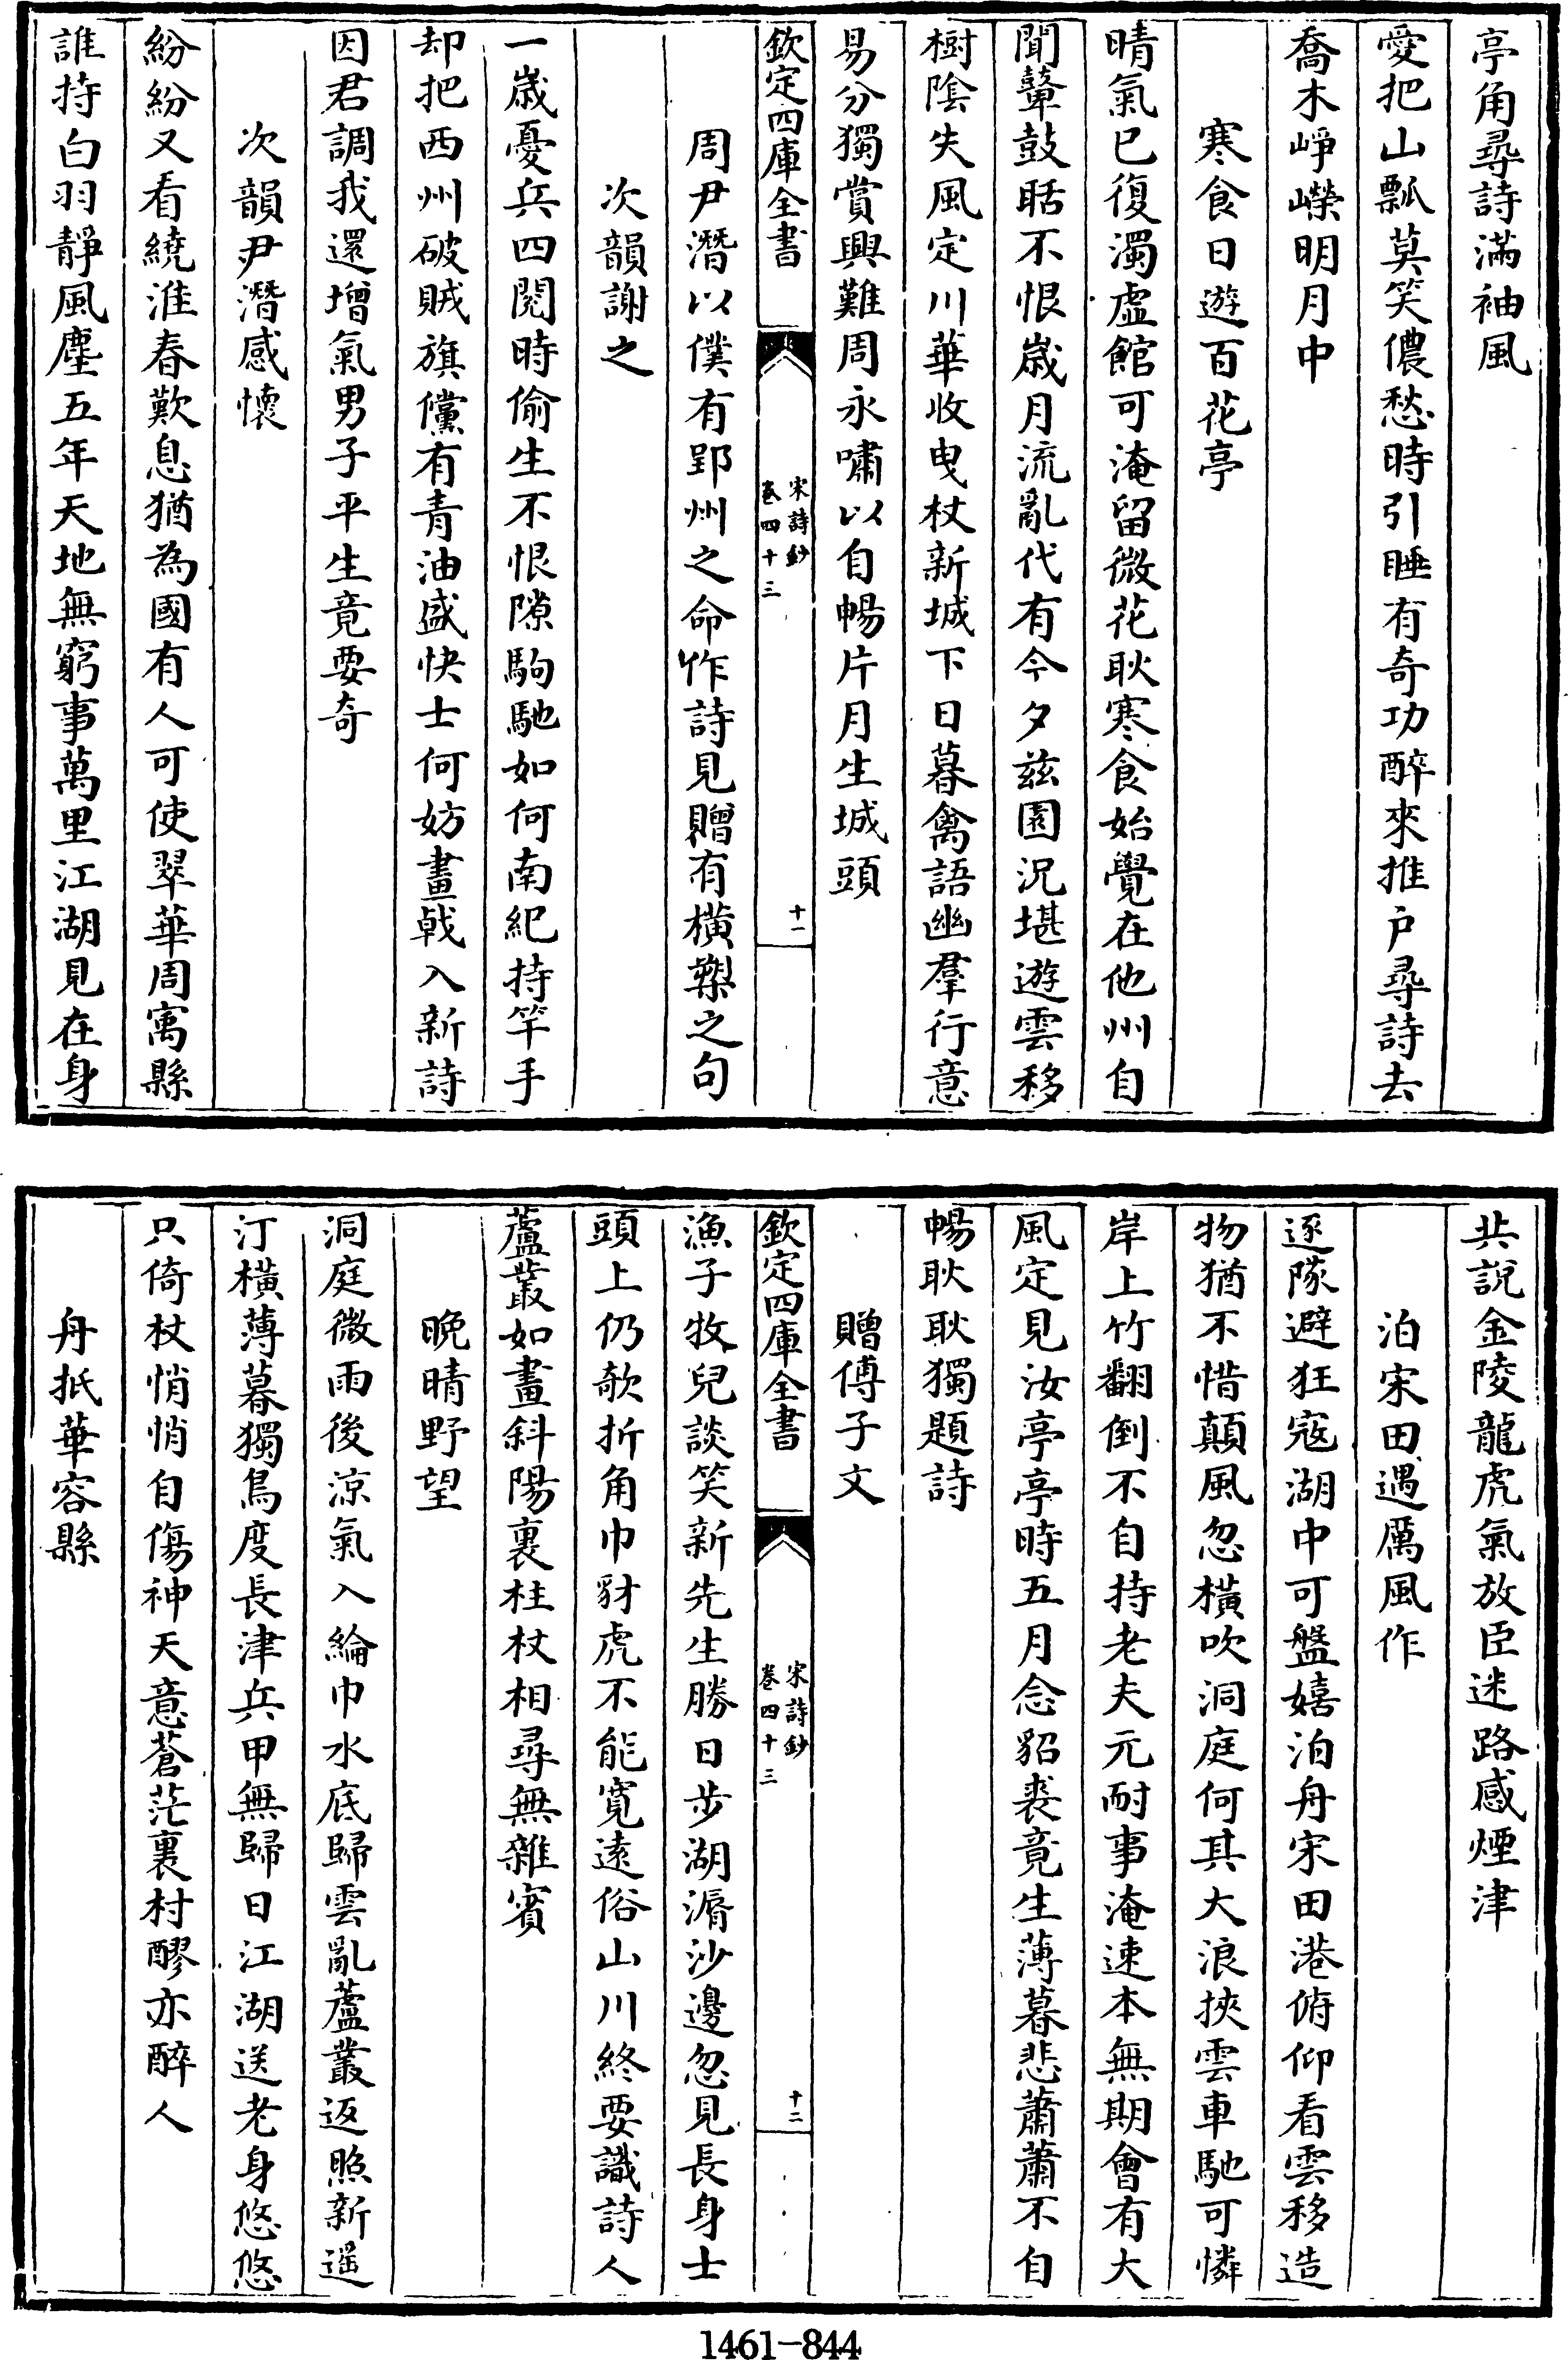 亭角尋詩滿袖風
愛把山瓢莫笑儂愁時引睡有奇功醉來推户尋詩去
喬木崢嶸明月中
寒食日遊百花亭
晴氣已復濁虛館可淹留微花耿寒食始覺在他州自
聞鼙鼓聒不恨歲月流亂代有今夕兹園況堪遊雲移
樹陰失風定川華收曳杖新城下日暮禽語幽羣行意
易分獨賞興難周永嘯以自暢片月生城頭
欽定四庫全書
宋詩鈔
卷四十三
十一
周尹潛以僕有郢州之命作詩見贈有橫槊之句
次韻謝之
一歲憂兵四閱時偷生不恨隙駒馳如何南紀持竿手
却把西州破賊旗儻有青油盛快士何妨畫戟入新詩
因君調我還增氣男子平生竟要奇
次韻尹潛感懷
紛紛又看繞淮春歎息猶為國有人可使翠華周寓縣
誰持白羽靜風塵五年天地無窮事萬里江湖見在身
共說金陵龍虎氣放臣迷路感煙津
泊宋田遇厲風作
逐隊避狂寇湖中可盤嬉泊舟宋田港俯仰看雲移造
物猶不惜顛風忽橫吹洞庭何其大浪挾雲車馳可憐
岸上竹翻倒不自持老夫元耐事淹速本無期會有大
風定見汝亭亭時五月念貂裘竟生薄暮悲蕭蕭不自
暢耿耿獨題詩
贈傅子文
欽定四庫全書
宋詩鈔
卷四十三
十二
漁子牧兒談笑新先生勝日步湖漘沙邊忽見長身士
頭上仍欹折角巾豺虎不能寬遠俗山川終要識詩人
蘆叢如畫斜陽裏柱杖相尋無雜賓
晚晴野望
洞庭微雨後涼氣入綸巾水底歸雲亂蘆叢返照新遥
汀橫薄暮獨鳥度長津兵甲無歸日江湖送老身悠悠
只倚杖悄悄自傷神天意蒼茫裏村醪亦醉人
舟抵華容縣
1461-844